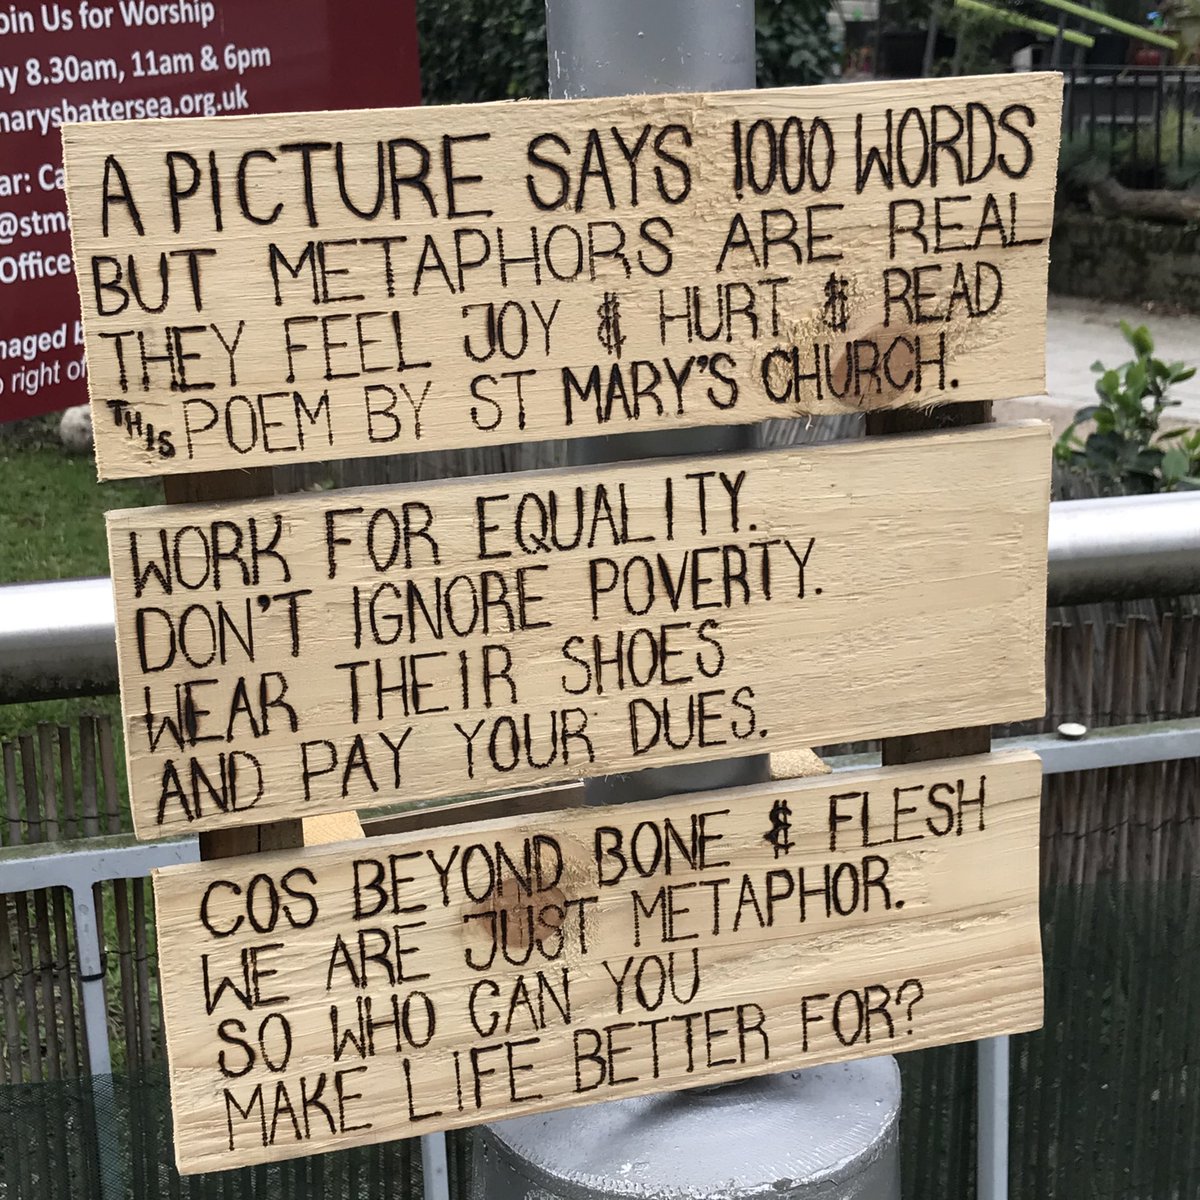 oin Us for Worship
ay 8.30am, 11am & 6pm
narysbattersea.org.uk
ar: Ca
@stma
Office
naged b
right of
A PICTURE SAYS 1000 WORDS
BUT METAPHORS ARE REAL
THEY FEEL JOY & HURT & READ
THIS POEM BY ST MARY'S CHURCH.
WORK FOR EQUALITY.
DON'T IGNORE POVERTY.
WEAR THEIR SHOES
AND PAY YOUR DUES.
COS BEYOND BONE & FLESH
WE ARE JUST METAPHOR.
SO WHO CAN YOU
MAKE LIFE BETTER FOR?